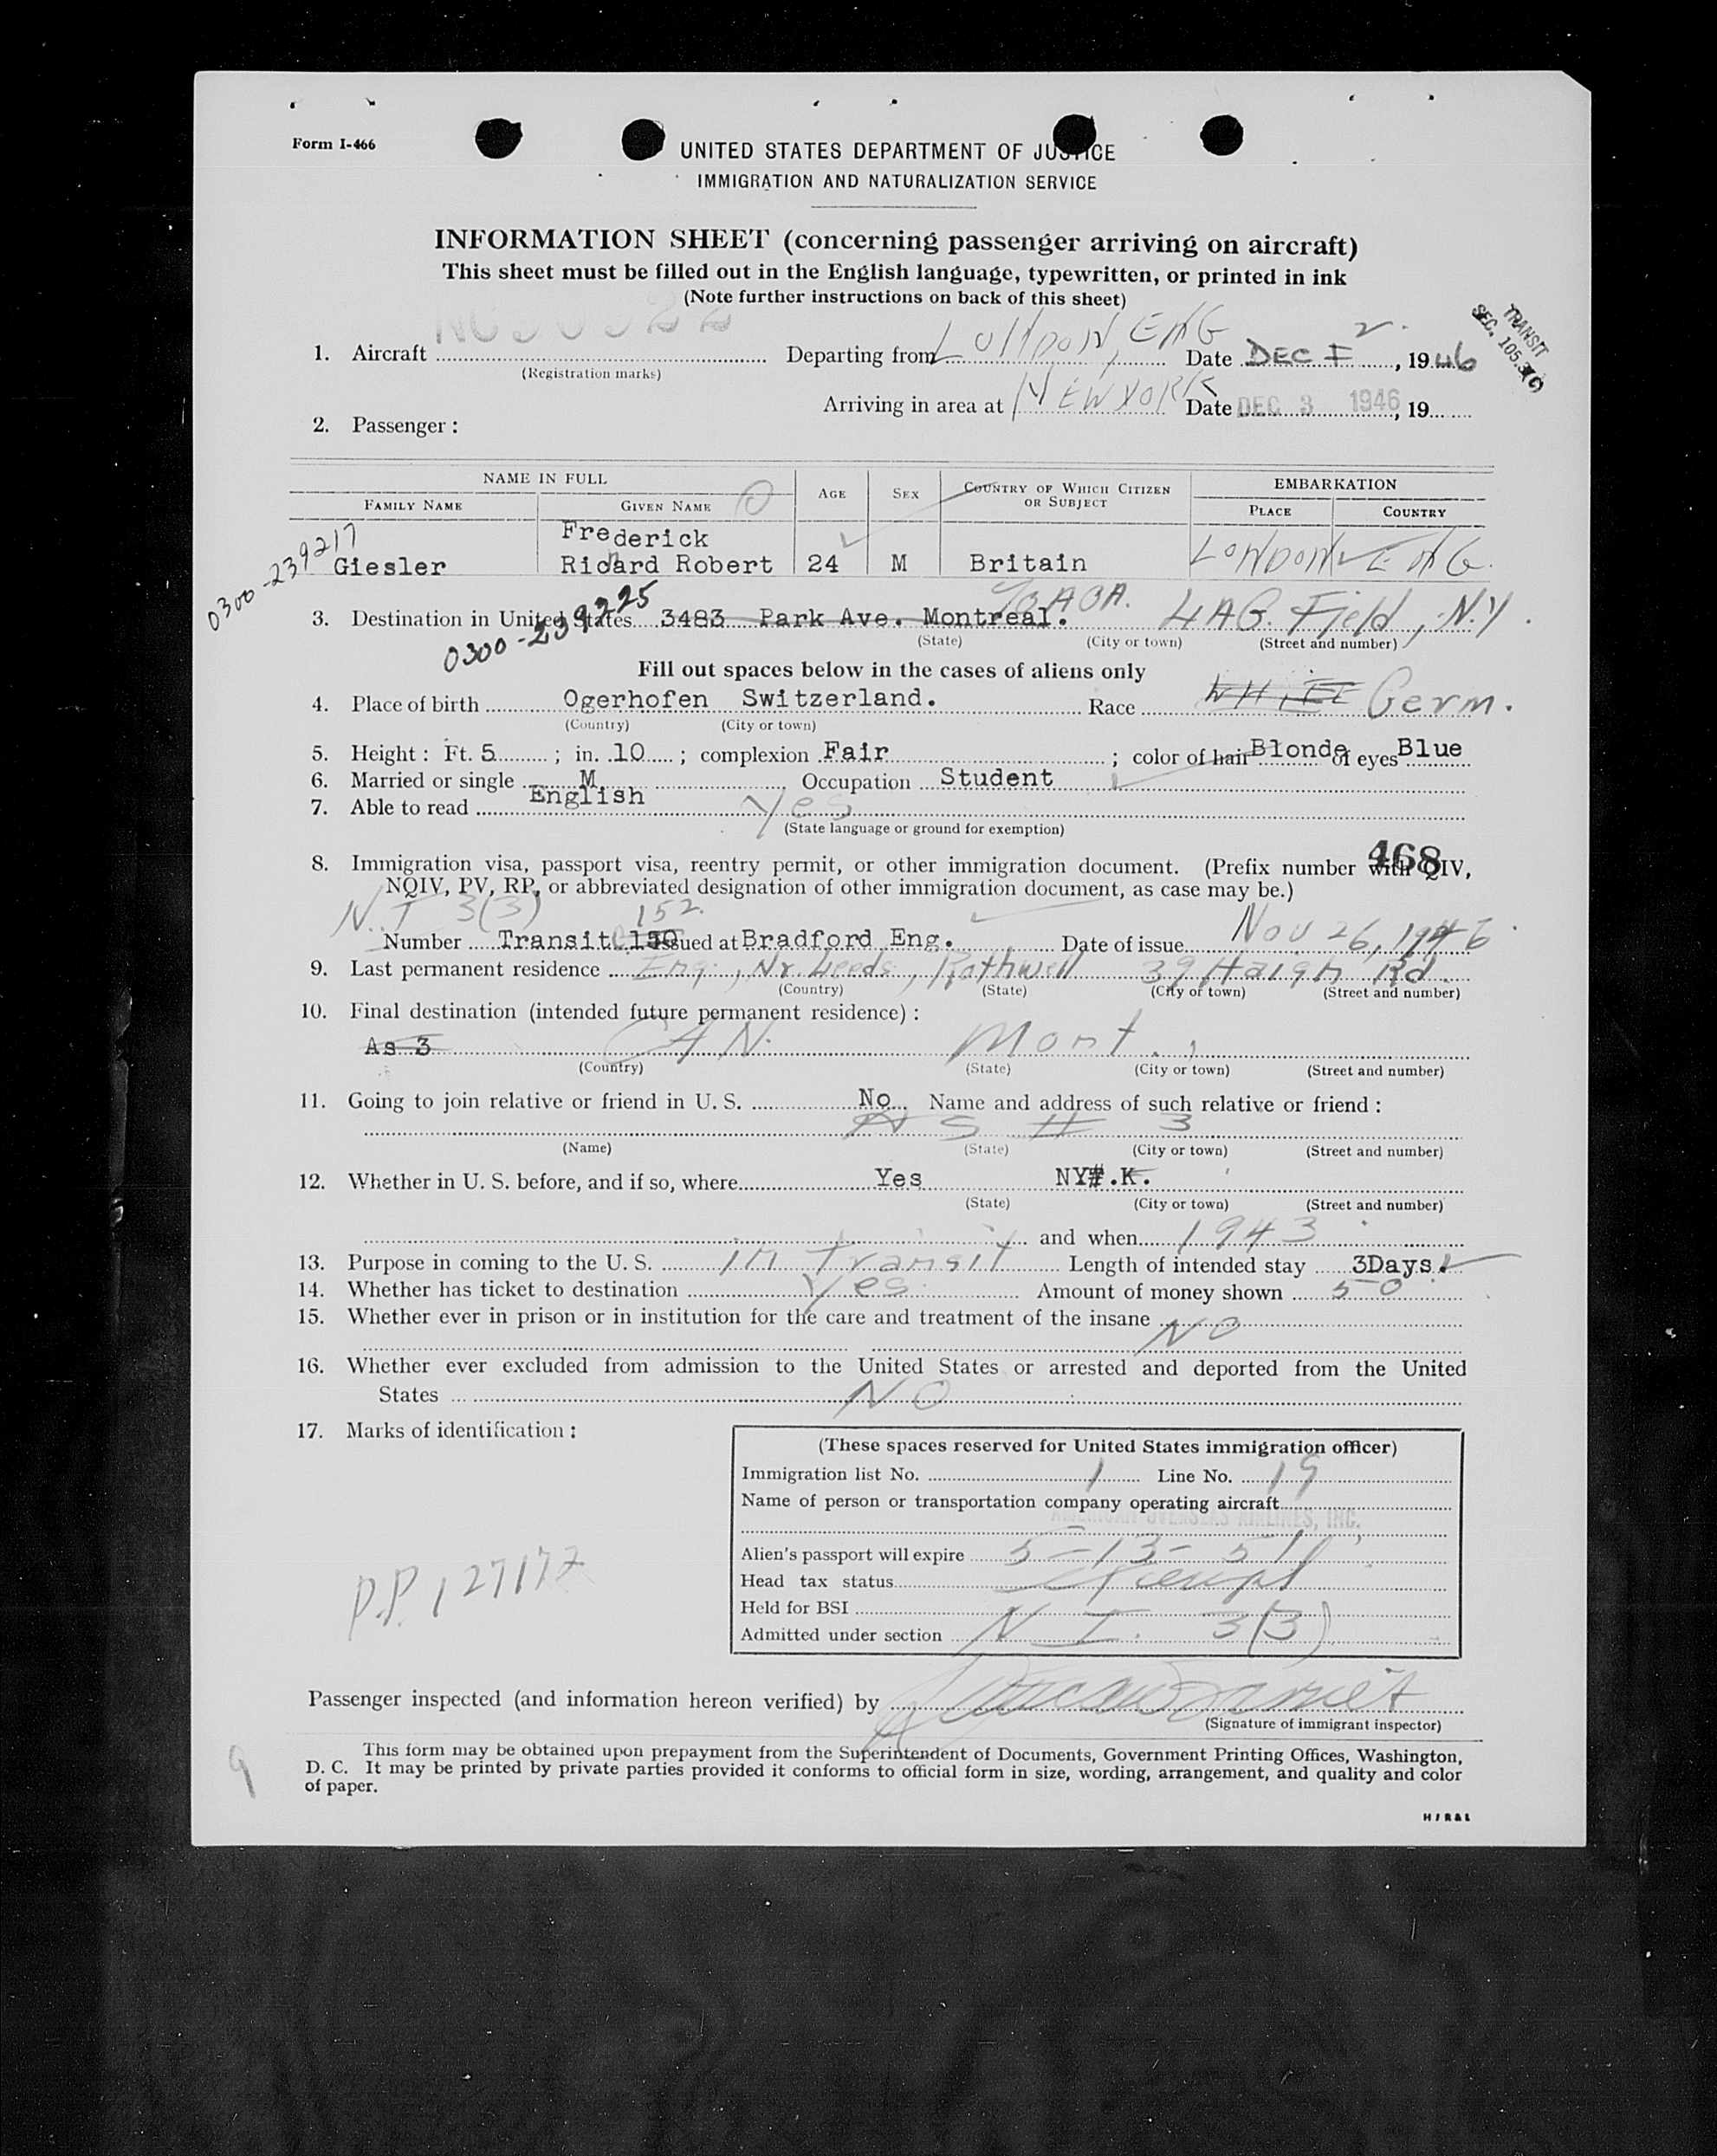 Form I-466
UNITED STATES DEPARTMENT OF JUSTICE
IMMIGRATION AND NATURALIZATION SERVICE
INFORMATION SHEET (concerning passenger arriving on aircraft)
This sheet must be filled out in the English language, typewritten, or printed in ink
(Note further instructions on back of this sheet)
TRANSIT
SEC. 105.3(c)
1. Aircraft Departing from LONDON, ENG Date DEC 2, 1946
(Registration marks)
Arriving in area at NEW YORK Date DEC 3 1946, 19
2. Passenger:
NAME IN FULL AGE SEX COUNTRY OF WHICH CITIZEN OR SUBJECT EMBARKATION
FAMILY NAME GIVEN NAME PLACE COUNTRY
0300-239217
Frederick
Giesler Richard Robert 24 M Britain LONDON ENG.
0300-239225
3. Destination in United States 3483 Park Ave. Montreal. % AOA. LAG. Field, N.Y.
(State) (City or town) (Street and number)
Fill out spaces below in the cases of aliens only
4. Place of birth Ogerhofen Switzerland. Race WHITE Germ.
(Country) (City or town)
5. Height: Ft. 5; in. 10; complexion Fair; color of hair Blonde of eyes Blue
6. Married or single M Occupation Student
7. Able to read English Yes
(State language or ground for exemption)
468
8. Immigration visa, passport visa, reentry permit, or other immigration document. (Prefix number with QIV,
NQIV, PV, RP, or abbreviated designation of other immigration document, as case may be.)
N.I 3(3) 152.
Number Transit 150 Issued at Bradford Eng. Date of issue Nov 26, 1946
9. Last permanent residence Eng., Nr. Leeds, Rothwell 39 Haigh Rd.
(Country) (State) (City or town) (Street and number)
10. Final destination (intended future permanent residence):
As 3 CAN. Mont.,
(Country) (State) (City or town) (Street and number)
11. Going to join relative or friend in U. S. No Name and address of such relative or friend:
AS # 3
(Name) (State) (City or town) (Street and number)
12. Whether in U. S. before, and if so, where Yes NY#.K.
(State) (City or town) (Street and number)
and when 1943
13. Purpose in coming to the U. S. In transit Length of intended stay 3Days.
14. Whether has ticket to destination Yes Amount of money shown 50
15. Whether ever in prison or in institution for the care and treatment of the insane NO
16. Whether ever excluded from admission to the United States or arrested and deported from the United
States NO
17. Marks of identification:
(These spaces reserved for United States immigration officer)
Immigration list No. 1 Line No. 19
Name of person or transportation company operating aircraft
AMERICAN OVERSEAS AIRLINES, INC.
Alien's passport will expire 5-13-51
Head tax status Exempt
Held for BSI
Admitted under section N I. 3(3)
P.P. 127172
Passenger inspected (and information hereon verified) by
(Signature of immigrant inspector)
9
This form may be obtained upon prepayment from the Superintendent of Documents, Government Printing Offices, Washington,
D. C. It may be printed by private parties provided it conforms to official form in size, wording, arrangement, and quality and color
of paper.